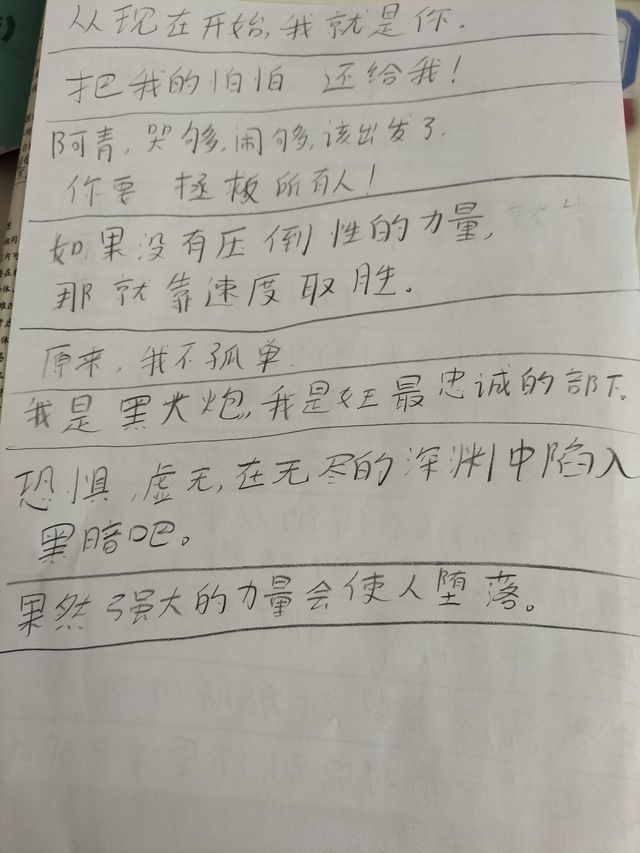 从现在开始,我就是你.
把我的怕怕 还给我!
阿青,哭够,闹够,该出发了.
你要 拯救所有人!
如果没有压倒性的力量,
那就靠速度取胜。
原来,我不孤单.
我是黑火炮,我是女王最忠诚的部下。
恐惧,虚无,在无尽的深渊中陷入
黑暗吧。
果然强大的力量会使人堕落。